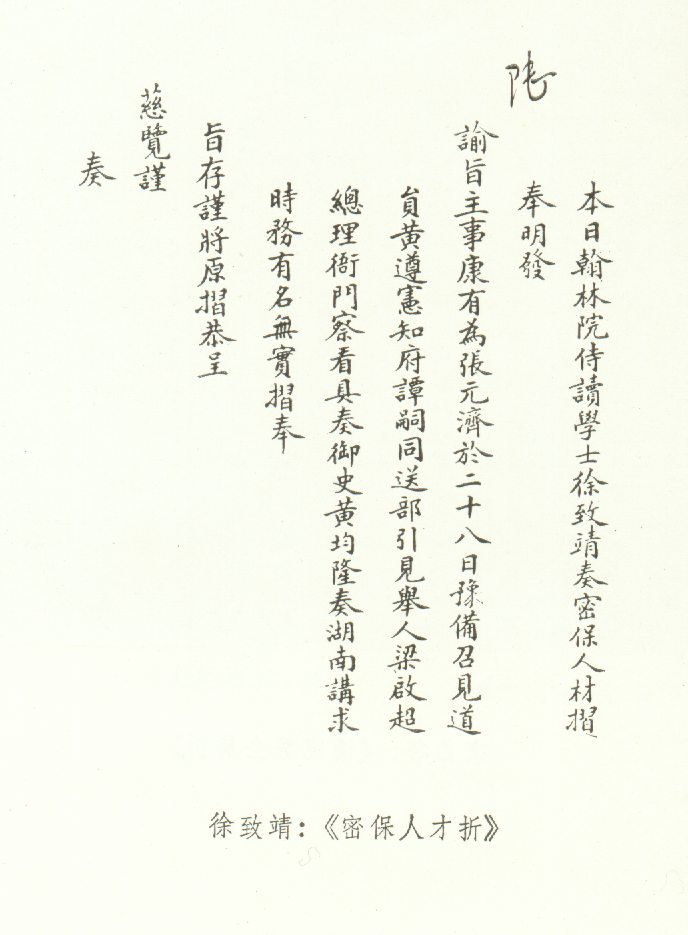 本日翰林院侍讀學士徐致靖奏密保人材摺
奉明發
諭旨主事康有為張元濟於二十八日豫備召見道
員黃遵憲知府譚嗣同送部引見舉人梁啟超
總理衙門察看具奏御史黃均隆奏湖南講求
時務有名無實摺奉
旨存謹將原摺恭呈
慈覽謹
奏
徐致靖：《密保人才折》